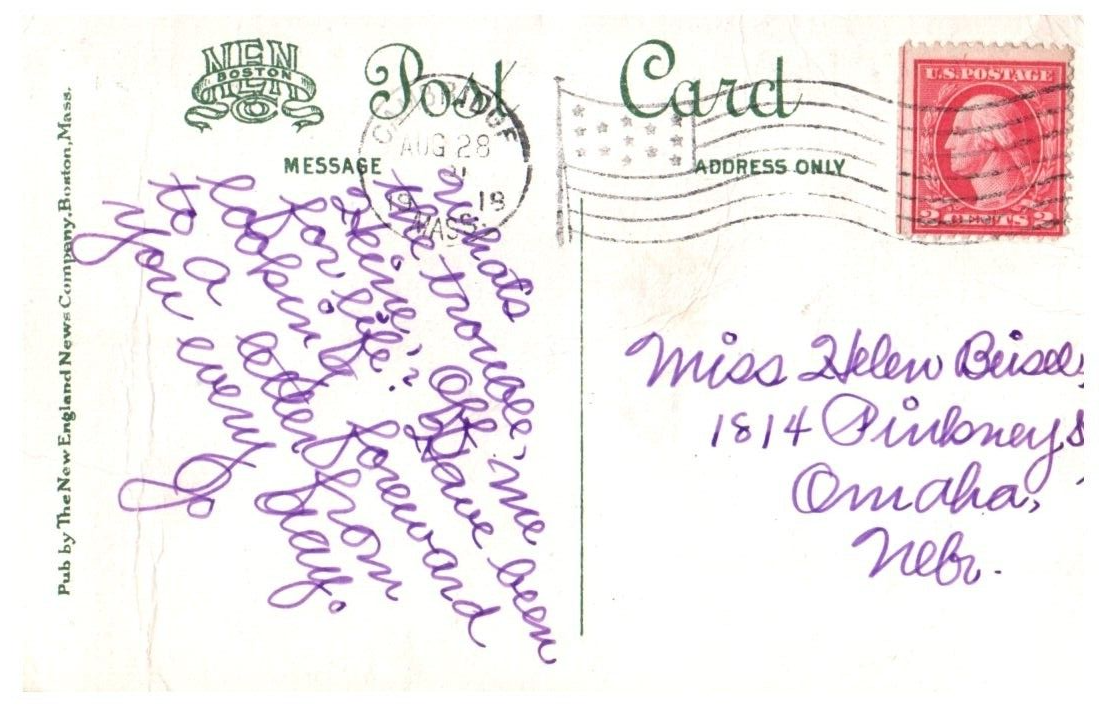 NEN
BOSTON
Co
Post Card
CAMBRIDGE
AUG 28
1918
MASS.
MESSAGE
ADDRESS ONLY
U.S. POSTAGE
2 CENTS 2
Pub by The New England News Company, Boston, Mass.
What's
the trouble, me
Heine, Off
for life? Have been
looking foreward
to a letter from
you every day.
Jo
Miss Helen Beisel,
1814 Pinkney S
Omaha,
Nebr.